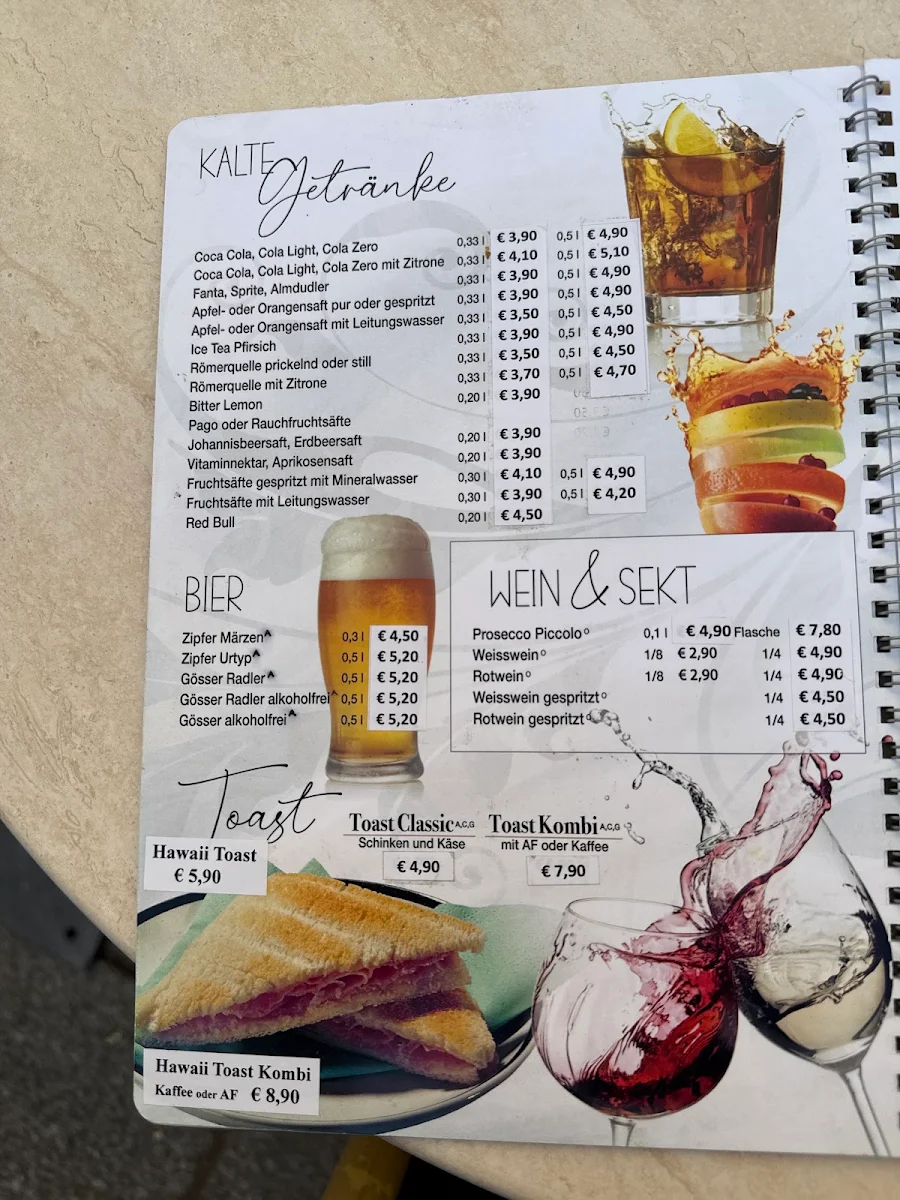 KALTE Getränke
Coca Cola, Cola Light, Cola Zero 0,33 l € 3,90 0,5 l € 4,90
Coca Cola, Cola Light, Cola Zero mit Zitrone 0,33 l € 4,10 0,5 l € 5,10
Fanta, Sprite, Almdudler 0,33 l € 3,90 0,5 l € 4,90
Apfel- oder Orangensaft pur oder gespritzt 0,33 l € 3,90 0,5 l € 4,90
Apfel- oder Orangensaft mit Leitungswasser 0,33 l € 3,50 0,5 l € 4,50
Ice Tea Pfirsich 0,33 l € 3,90 0,5 l € 4,90
Römerquelle prickelnd oder still 0,33 l € 3,50 0,5 l € 4,50
Römerquelle mit Zitrone 0,33 l € 3,70 0,5 l € 4,70
Bitter Lemon 0,20 l € 3,90
Pago oder Rauchfruchtsäfte
Johannisbeersaft, Erdbeersaft 0,20 l € 3,90
Vitaminnektar, Aprikosensaft 0,20 l € 3,90
Fruchtsäfte gespritzt mit Mineralwasser 0,30 l € 4,10 0,5 l € 4,90
Fruchtsäfte mit Leitungswasser 0,30 l € 3,90 0,5 l € 4,20
Red Bull 0,20 l € 4,50
BIER
Zipfer Märzen A 0,3 l € 4,50
Zipfer Urtyp A 0,5 l € 5,20
Gösser Radler A 0,5 l € 5,20
Gösser Radler alkoholfrei A 0,5 l € 5,20
Gösser alkoholfrei A 0,5 l € 5,20
WEIN & SEKT
Prosecco Piccolo O 0,1 l € 4,90 Flasche € 7,80
Weisswein O 1/8 € 2,90 1/4 € 4,90
Rotwein O 1/8 € 2,90 1/4 € 4,90
Weisswein gespritzt O 1/4 € 4,50
Rotwein gespritzt O 1/4 € 4,50
Toast
Toast Classic A,C,G
Schinken und Käse
€ 4,90
Toast Kombi A,C,G
mit AF oder Kaffee
€ 7,90
Hawaii Toast
€ 5,90
Hawaii Toast Kombi
Kaffee oder AF € 8,90